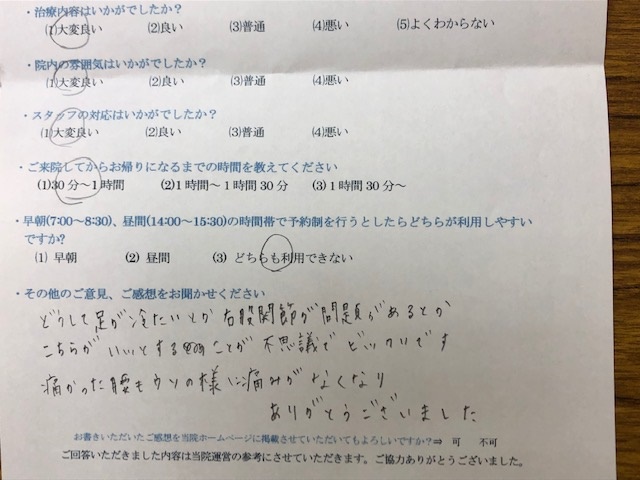 ・治療内容はいかがでしたか？
(1)大変良い (2)良い (3)普通 (4)悪い (5)よくわからない
・院内の雰囲気はいかがでしたか？
(1)大変良い (2)良い (3)普通 (4)悪い
・スタッフの対応はいかがでしたか？
(1)大変良い (2)良い (3)普通 (4)悪い
・ご来院してからお帰りになるまでの時間を教えてください
(1)30分～1時間 (2)1時間～1時間30分 (3)1時間30分～
・早朝(7:00～8:30)、昼間(14:00～15:30)の時間帯で予約制を行うとしたらどちらが利用しやすい
ですか?
(1) 早朝 (2) 昼間 (3) どちらも利用できない
・その他のご意見、ご感想をお聞かせください
どうして足が冷たいとか 右股関節が問題があるとか
こちらが いいとする ことが 不思議で ビックリです
痛かった腰もウソの様に痛みがなくなり
ありがとうございました
お書きいただいたご感想を当院ホームページに掲載させていただいてもよろしいですか？⇒ 可 不可
ご回答いただきました内容は当院運営の参考にさせていただきます。ご協力ありがとうございました。